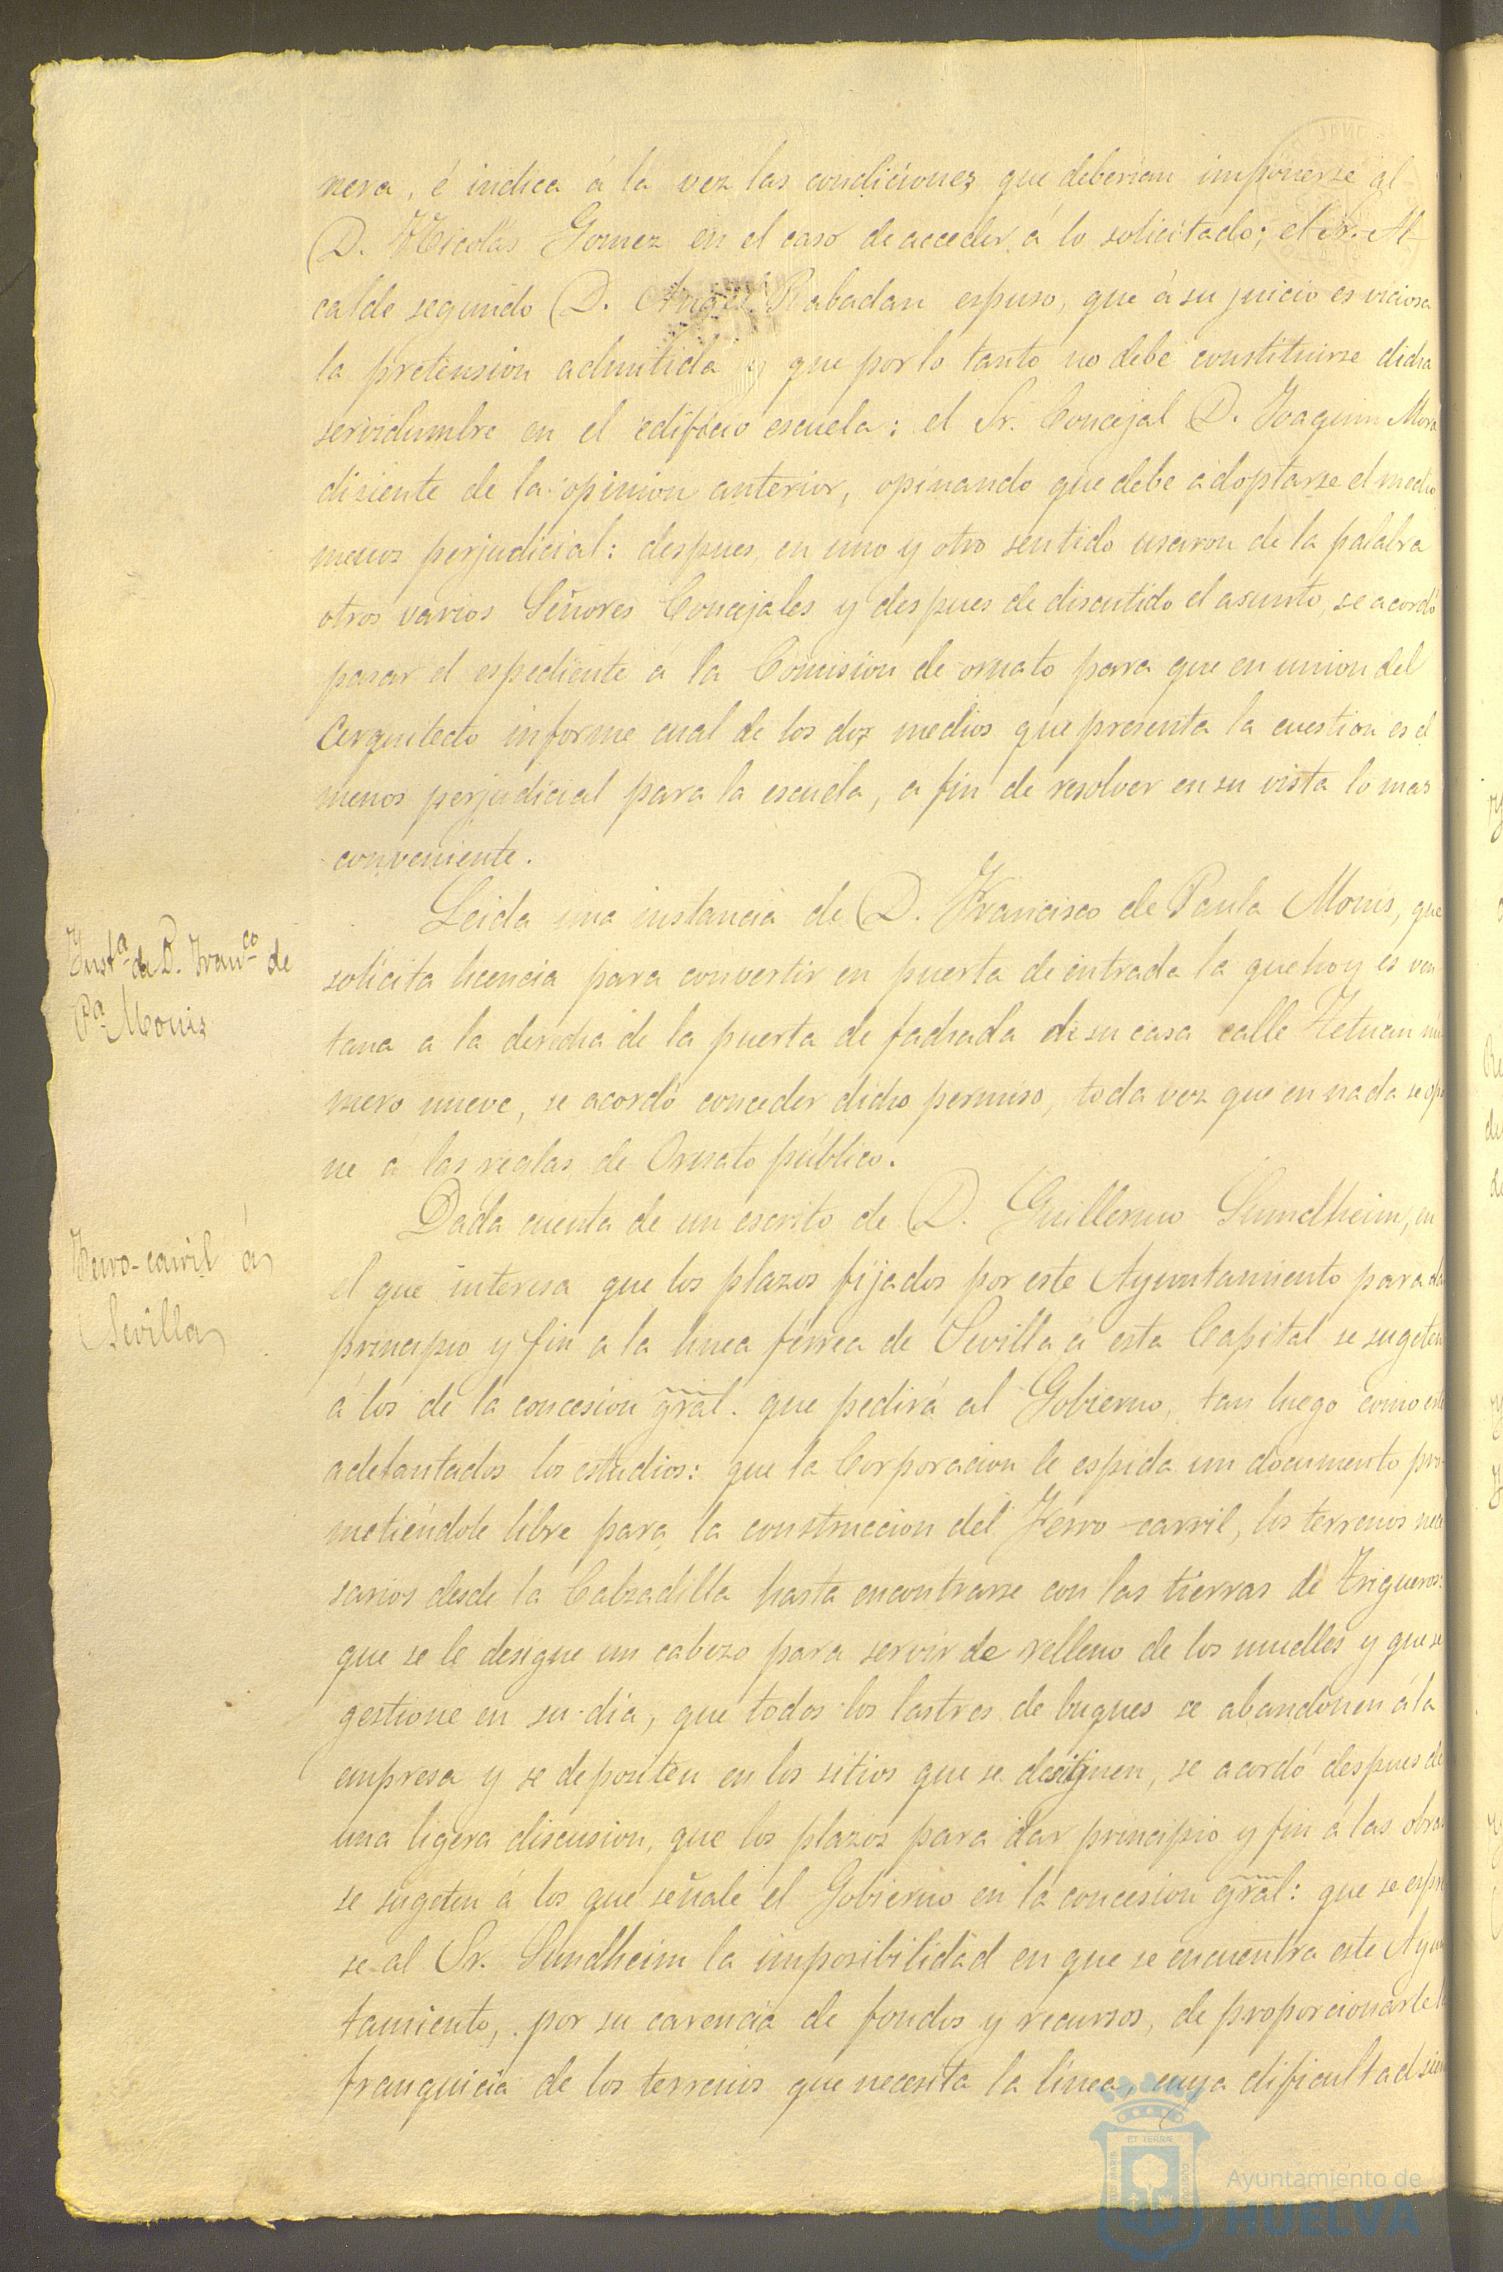 nera, é indica á la vez las condiciones que deberian imponerse al
D. Nicolás Gomez en el caso de acceder á lo solicitado; el Sr. Al-
calde segundo D. Angel Rabadan espuso, que á su juicio es viciosa
la pretension admitida y que por lo tanto no debe constituirse dicha
servidumbre en el edificio escuela: el Sr. Concejal D. Joaquin Mora
disiente de la opinion anterior, opinando que debe adoptarse el medio
menos perjudicial: despues en uno y otro sentido usaron de la palabra
otros varios Señores Concejales y despues de discutido el asunto, se acordó
pasar el espediente a la Comision de ornato para que en union del
Arquitecto informe cual de los dos medios que presenta la cuestion es el
menos perjudicial para la escuela, a fin de resolver en su vista lo mas
conveniente.
Insta. de D. Franco. de
Pa. Monis
Leida una instancia de D. Francisco de Paula Monis, que
solicita licencia para convertir en puerta de entrada la que hoy es ven
tana a la derecha de la puerta de fachada de su casa calle Tetuan nú
mero nueve, se acordó conceder dicho permiso, toda vez que en nada se opo
ne á las reglas de Ornato público.
Ferro-carril á
Sevilla
Dada cuenta de un escrito de D. Guillermo Sundheim, en
el que interesa que los plazos fijados por este Ayuntamiento para dar
principio y fin a la linea férrea de Sevilla á esta Capital se sugeten
á los de la concesion gral. que pedirá al Gobierno, tan luego como esten
adelantados los estudios: que la Corporacion le espida un documento pro-
metiéndole libre para la construccion del Ferro-carril, los terrenos nece
sarios desde la Calzadilla hasta encontrarse con las tierras de Trigueros:
que se le designe un cabezo para servir de relleno de los muelles y que se
gestione en su dia, que todos los lastres de buques se abandonen á la
empresa y se depositen en los sitios que se designen, se acordó despues de
una ligera discusion, que los plazos para dar principio y fin á las obras
se sugeten á los que señale el Gobierno en la concesion gral: que se espre
se al Sr. Sundheim la imposibilidad en que se encuentra este Ayun
tamiento, por su carencia de fondos y recursos, de proporcionarle la
franquicia de los terrenos que necesita la linea, cuya dificultad
Ayuntamiento de
HUELVA